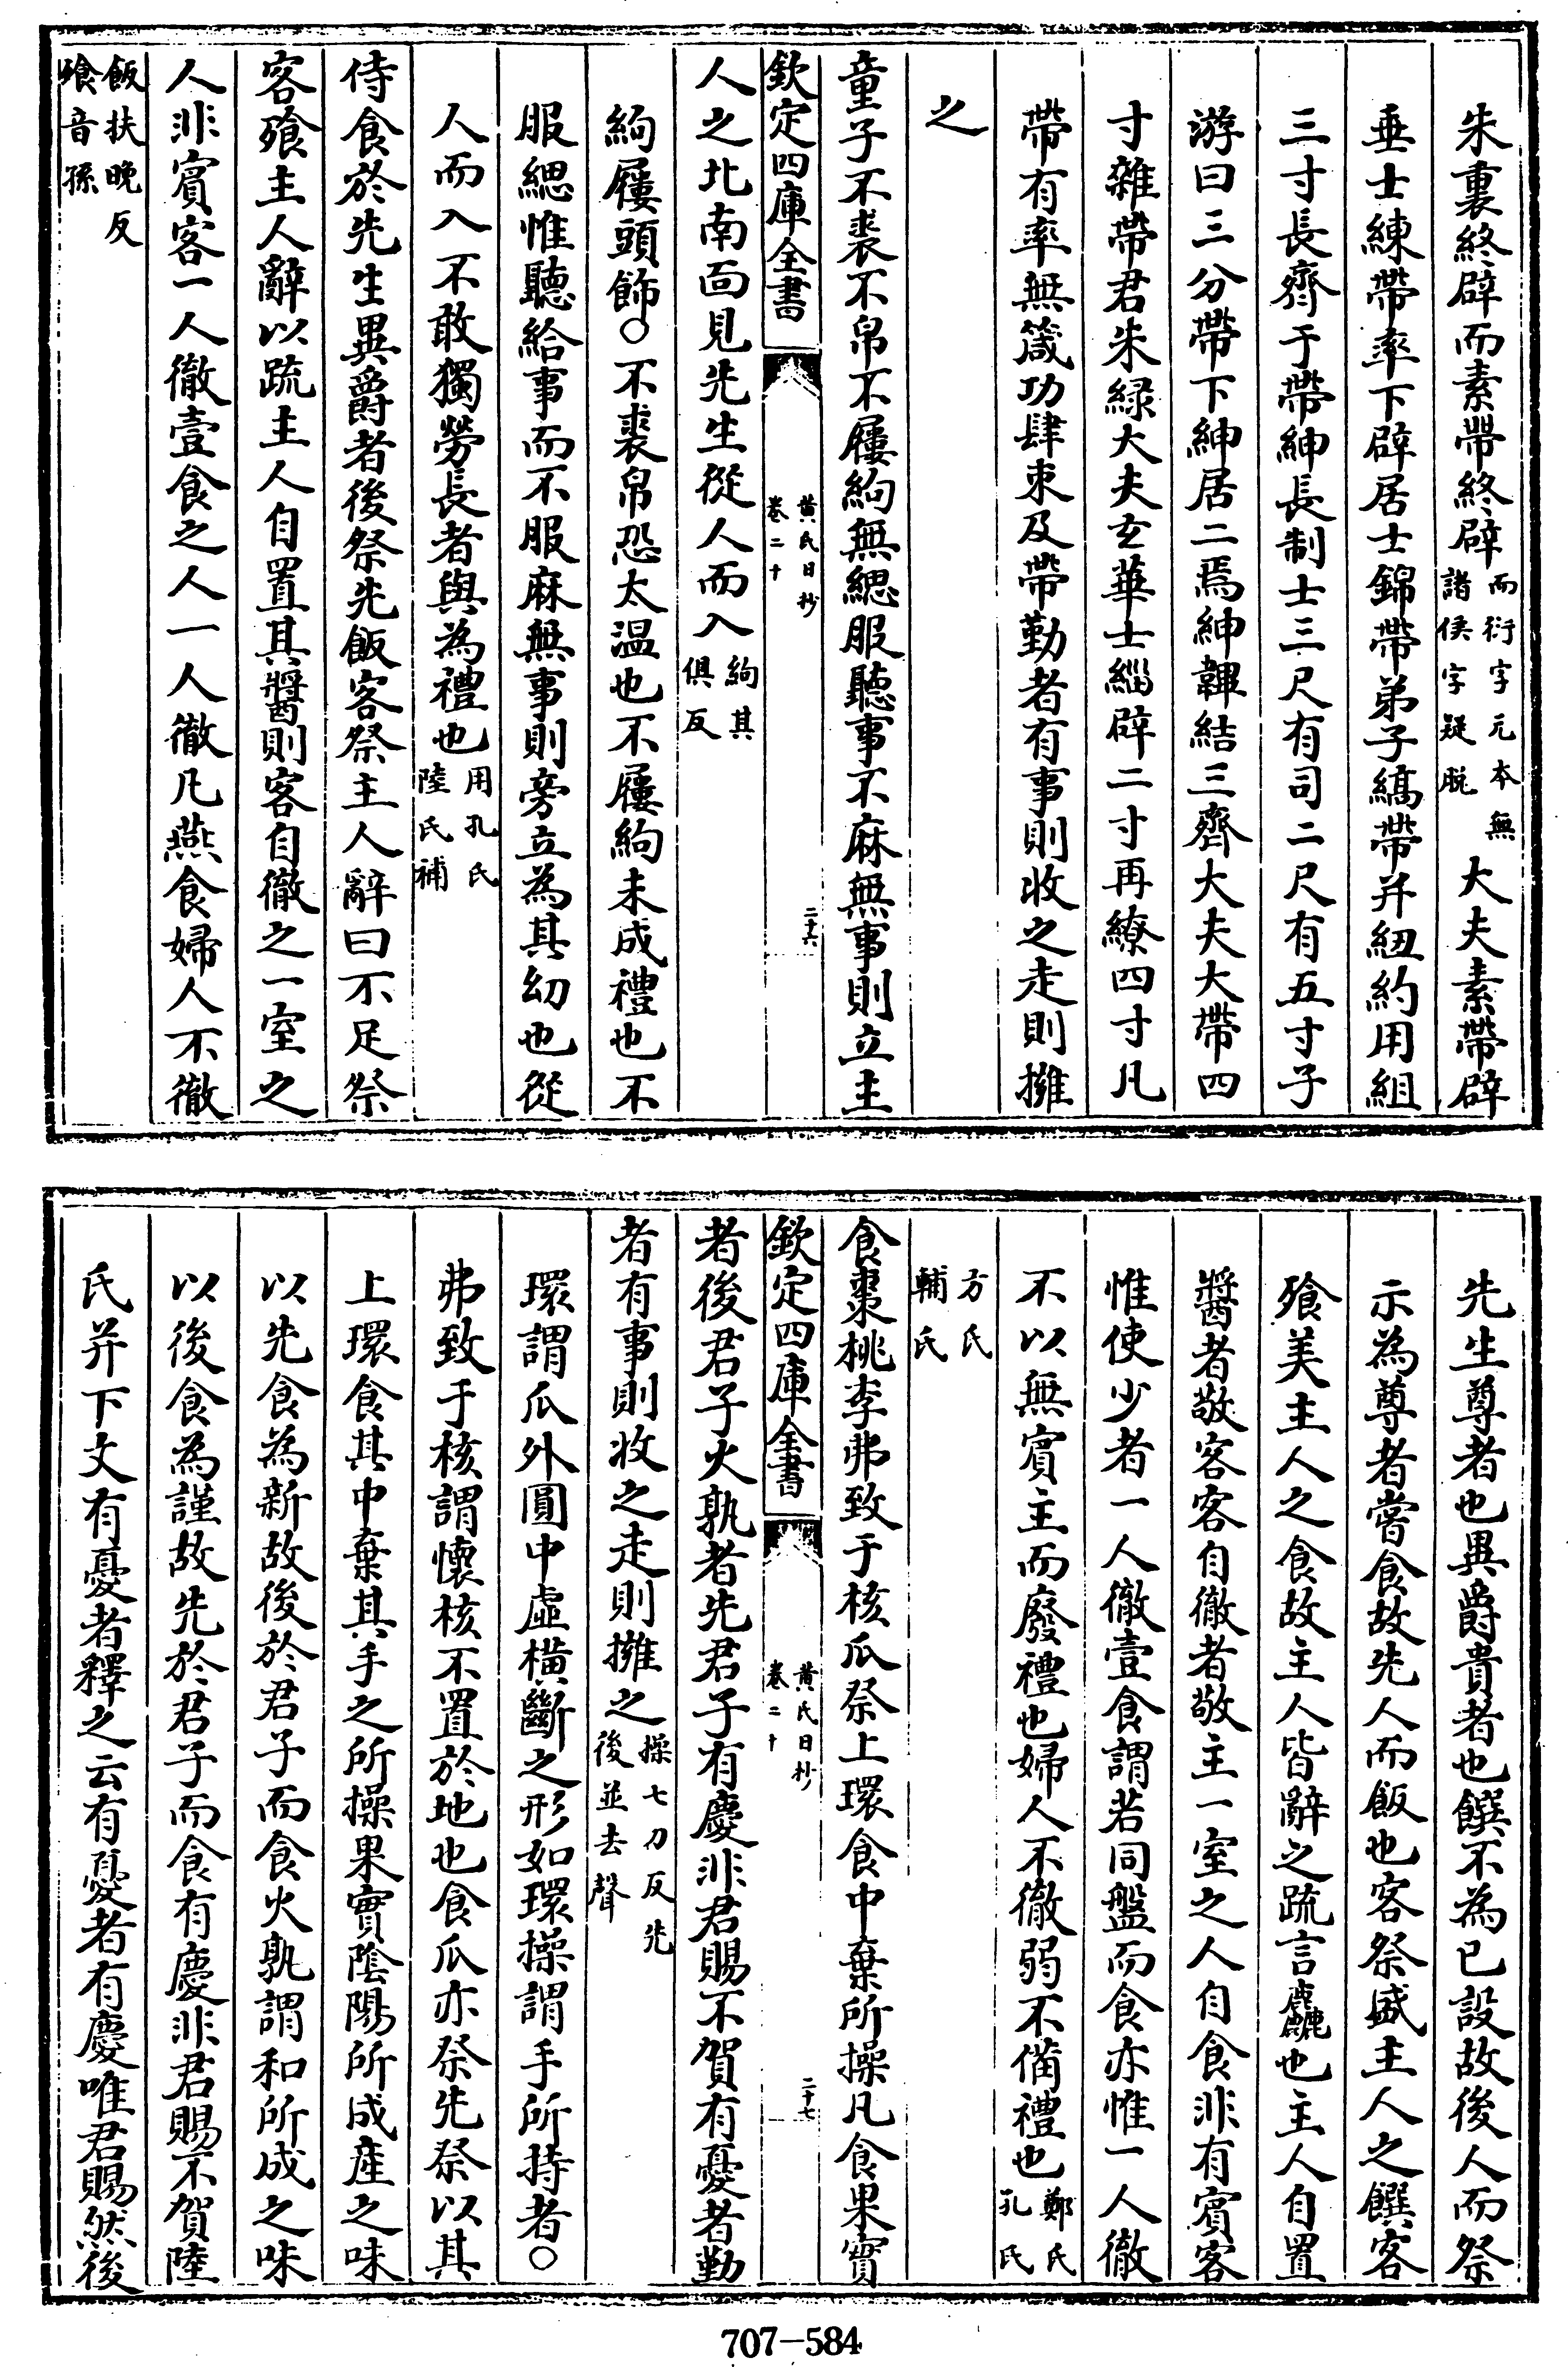 朱裏終辟而素帶終辟而衍字元本無諸侯字疑脱大夫素帶辟
垂士練帶率下辟居士錦帶弟子縞帶并紐約用組
三寸長齊于帶紳長制士三尺有司二尺有五寸子
游曰三分帶下紳居二焉紳韠結三齊大夫大帶四
寸雜帶君朱緑大夫玄華士緇辟二寸再繚四寸凡
帶有率無箴功肆束及帶勤者有事則收之走則擁
之
童子不裘不帛不屨絇無緦服聽事不麻無事則立主
欽定四庫全書
黄氏日抄
卷二十
二十六
人之北南面見先生從人而入絇其俱反
絇屨頭飾○不裘帛恐太温也不屨絇未成禮也不
服緦惟聽給事而不服麻無事則旁立為其幼也從
人而入不敢獨勞長者與為禮也用孔氏陸氏補
侍食於先生異爵者後祭先飯客祭主人辭曰不足祭
客飱主人辭以疏主人自置其醬則客自徹之一室之
人非賓客一人徹壹食之人一人徹凡燕食婦人不徹
飯扶晚反飱音孫
先生尊者也異爵貴者也饌不為已設故後人而祭
示為尊者嘗食故先人而飯也客祭盛主人之饌客
飱美主人之食故主人皆辭之疏言麤也主人自置
醬者敬客客自徹者敬主一室之人自食非有賓客
惟使少者一人徹壹食謂若同盤而食亦惟一人徹
不以無賓主而廢禮也婦人不徹弱不備禮也鄭氏孔氏
方氏輔氏
食棗桃李弗致于核瓜祭上環食中棄所操凡食果實
欽定四庫全書
黄氏日抄
卷二十
二十七
者後君子火孰者先君子有慶非君賜不賀有憂者勤
者有事則收之走則擁之操七刀反先後並去聲
環謂瓜外圓中虛橫斷之形如環操謂手所持者○
弗致于核謂懷核不置於地也食瓜亦祭先祭以其
上環食其中棄其手之所操果實陰陽所成産之味
以先食為新故後於君子而食火孰謂和所成之味
以後食為謹故先於君子而食有慶非君賜不賀陸
氏并下文有憂者釋之云有憂者有慶唯君賜然後
707-584